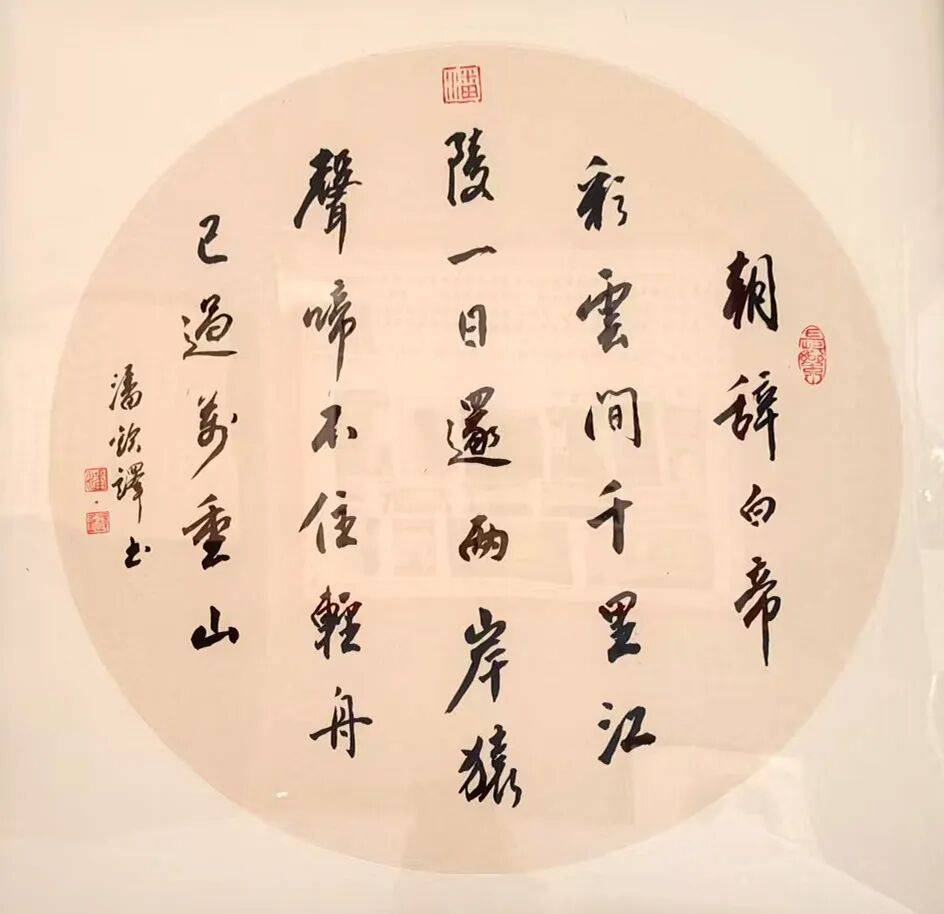 朝辞白帝
彩雲間千里江
陵一日還兩岸猿
聲啼不住輕舟
已過萬重山
潘欽譯书
潘